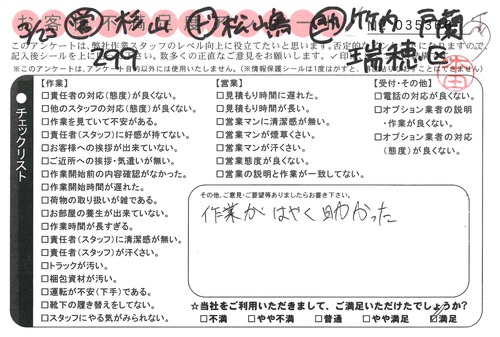 3/23 営 檜山 下 松山嶌 助 竹内 戸蘭
299 瑞穂区
このアンケートは、弊社作業スタッフのレベル向上に役立てたいと思います。
※このアンケートは、アンケート目的以外には使用いたしません。
チェックリスト
【作業】
□責任者の対応(態度)が良くない。
□他のスタッフの対応(態度)が良くない。
□作業を見ていて不安がある。
□責任者(スタッフ)に好感が持てない。
□お客様への挨拶が出来ていない。
□ご近所への挨拶・気遣いが無い。
□作業開始前の内容確認がなかった。
□作業開始時間が遅れた。
□荷物の取り扱いが雑である。
□お部屋の養生が出来ていない。
□作業時間が長すぎる。
□責任者(スタッフ)に清潔感が無い。
□責任者(スタッフ)が汗くさい。
□トラックが汚い。
□梱包資材が汚い。
□運転が不安(下手)である。
□靴下の履き替えをしてない。
□スタッフにやる気がみられない。
【営業】
□見積もり時間に遅れた。
□見積もり時間が長い。
□営業マンに清潔感が無い。
□営業マンが煙草くさい。
□営業マンが汗くさい。
□営業態度が良くない。
□営業の説明と作業が一致してない。
【受付・その他】
□電話の対応が良くない。
□オプション業者の説明
・作業が良くない。
□オプション業者の対応
(態度)が良くない。
その他、ご意見・ご要望等ありましたらお書き下さい。
作業が はやく 助かった
☆当社をご利用いただきまして、ご満足いただけたでしょうか?
□不満 □やや不満 □普通 □やや満足 □満足